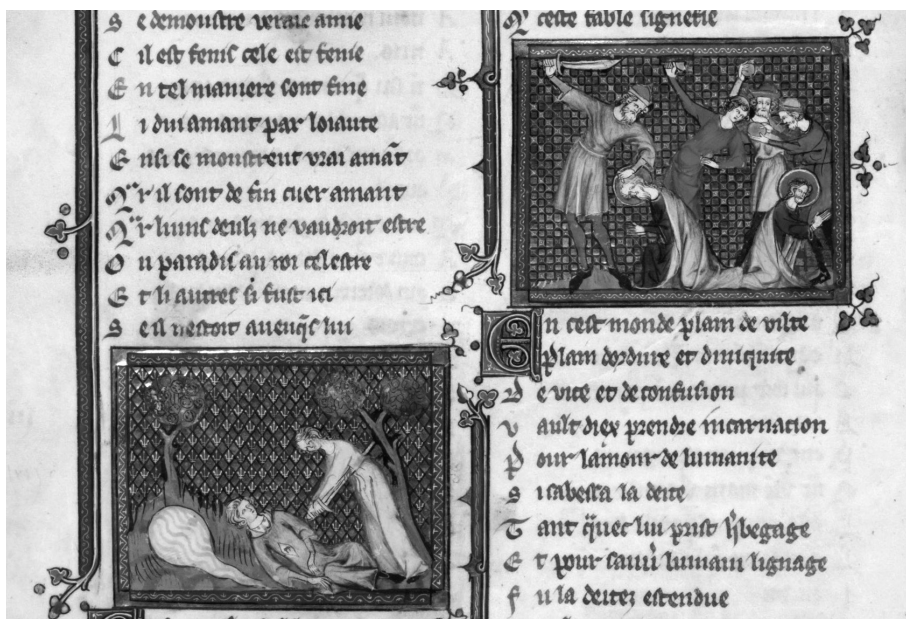 S e demoustre veraie amie
C il est fenis cele est fenie
E n tel maniere sont fine
L i dui amant par loiaute
E nsi se monstrent vrai amãt
Q̃r il sont de fin cuer amant
Q̃r luns deulz ne vaudroit estre
O n paradis au roi celestre
E t li autres si fust ici
S e il nestoit aueuq̃s lui
ceste fable signefie
E n cest monde plain de vilte
P lain dordure et diniquite
D e vice et de confusion
V ault diex prendre incarnacion
P our lamour de lumanite
S i abessa la deite
T ant q̃uec lui prist h̾begage
E t pour sauu̾ lumain lignage
F u la deitez estendue